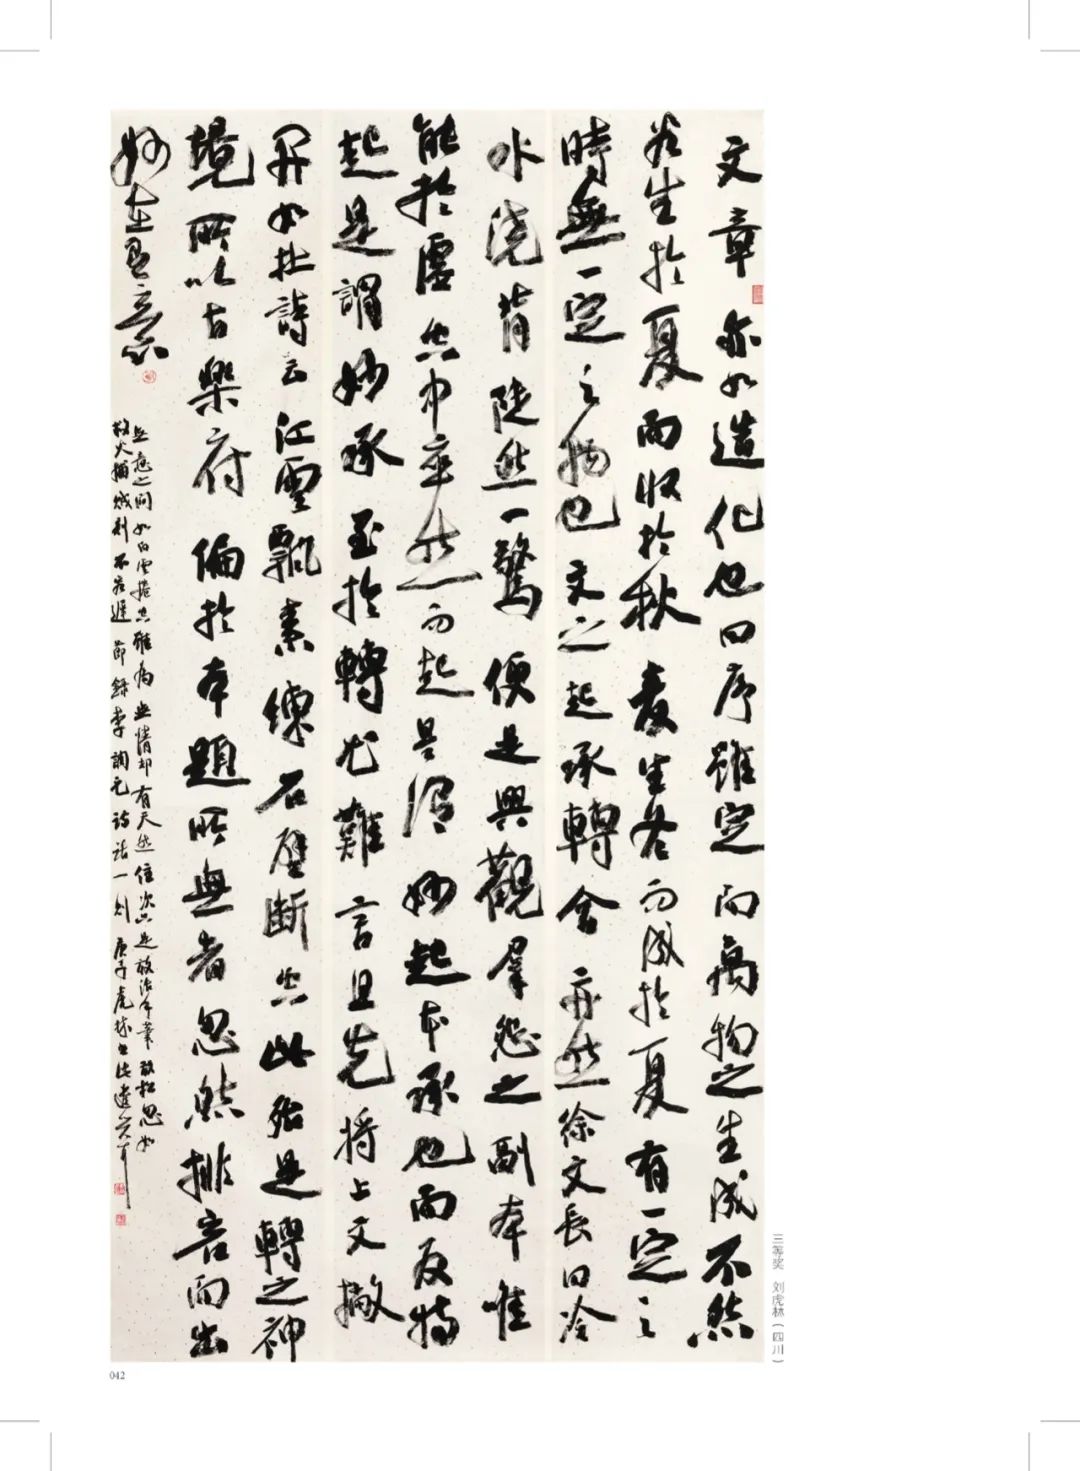 文章亦如造化也四序雖定而萬物之生成不然
谷生於夏而收於秋麦生冬而成於夏有一定之
時無一定之物也文之起承轉合亦然徐文長曰冷
水澆背陡然一驚便是興觀羣怨之副本惟
能於虛空中卒然而起是謂妙起本承也而反特
起是謂妙承至於轉尤難言且先將上文撇
開如杜詩云江雲飄素練石壁斷空此殆是轉之神
境所以古樂府偏於本題所無者忽然排音而出
妙在有意
無意之間如白雲捲空雖為無情却有天然位次只是放忽如
救火捕賊刻不容遲 節錄李調元詩話一則 庚子虎林書
三等奖 刘虎林（四川）
042